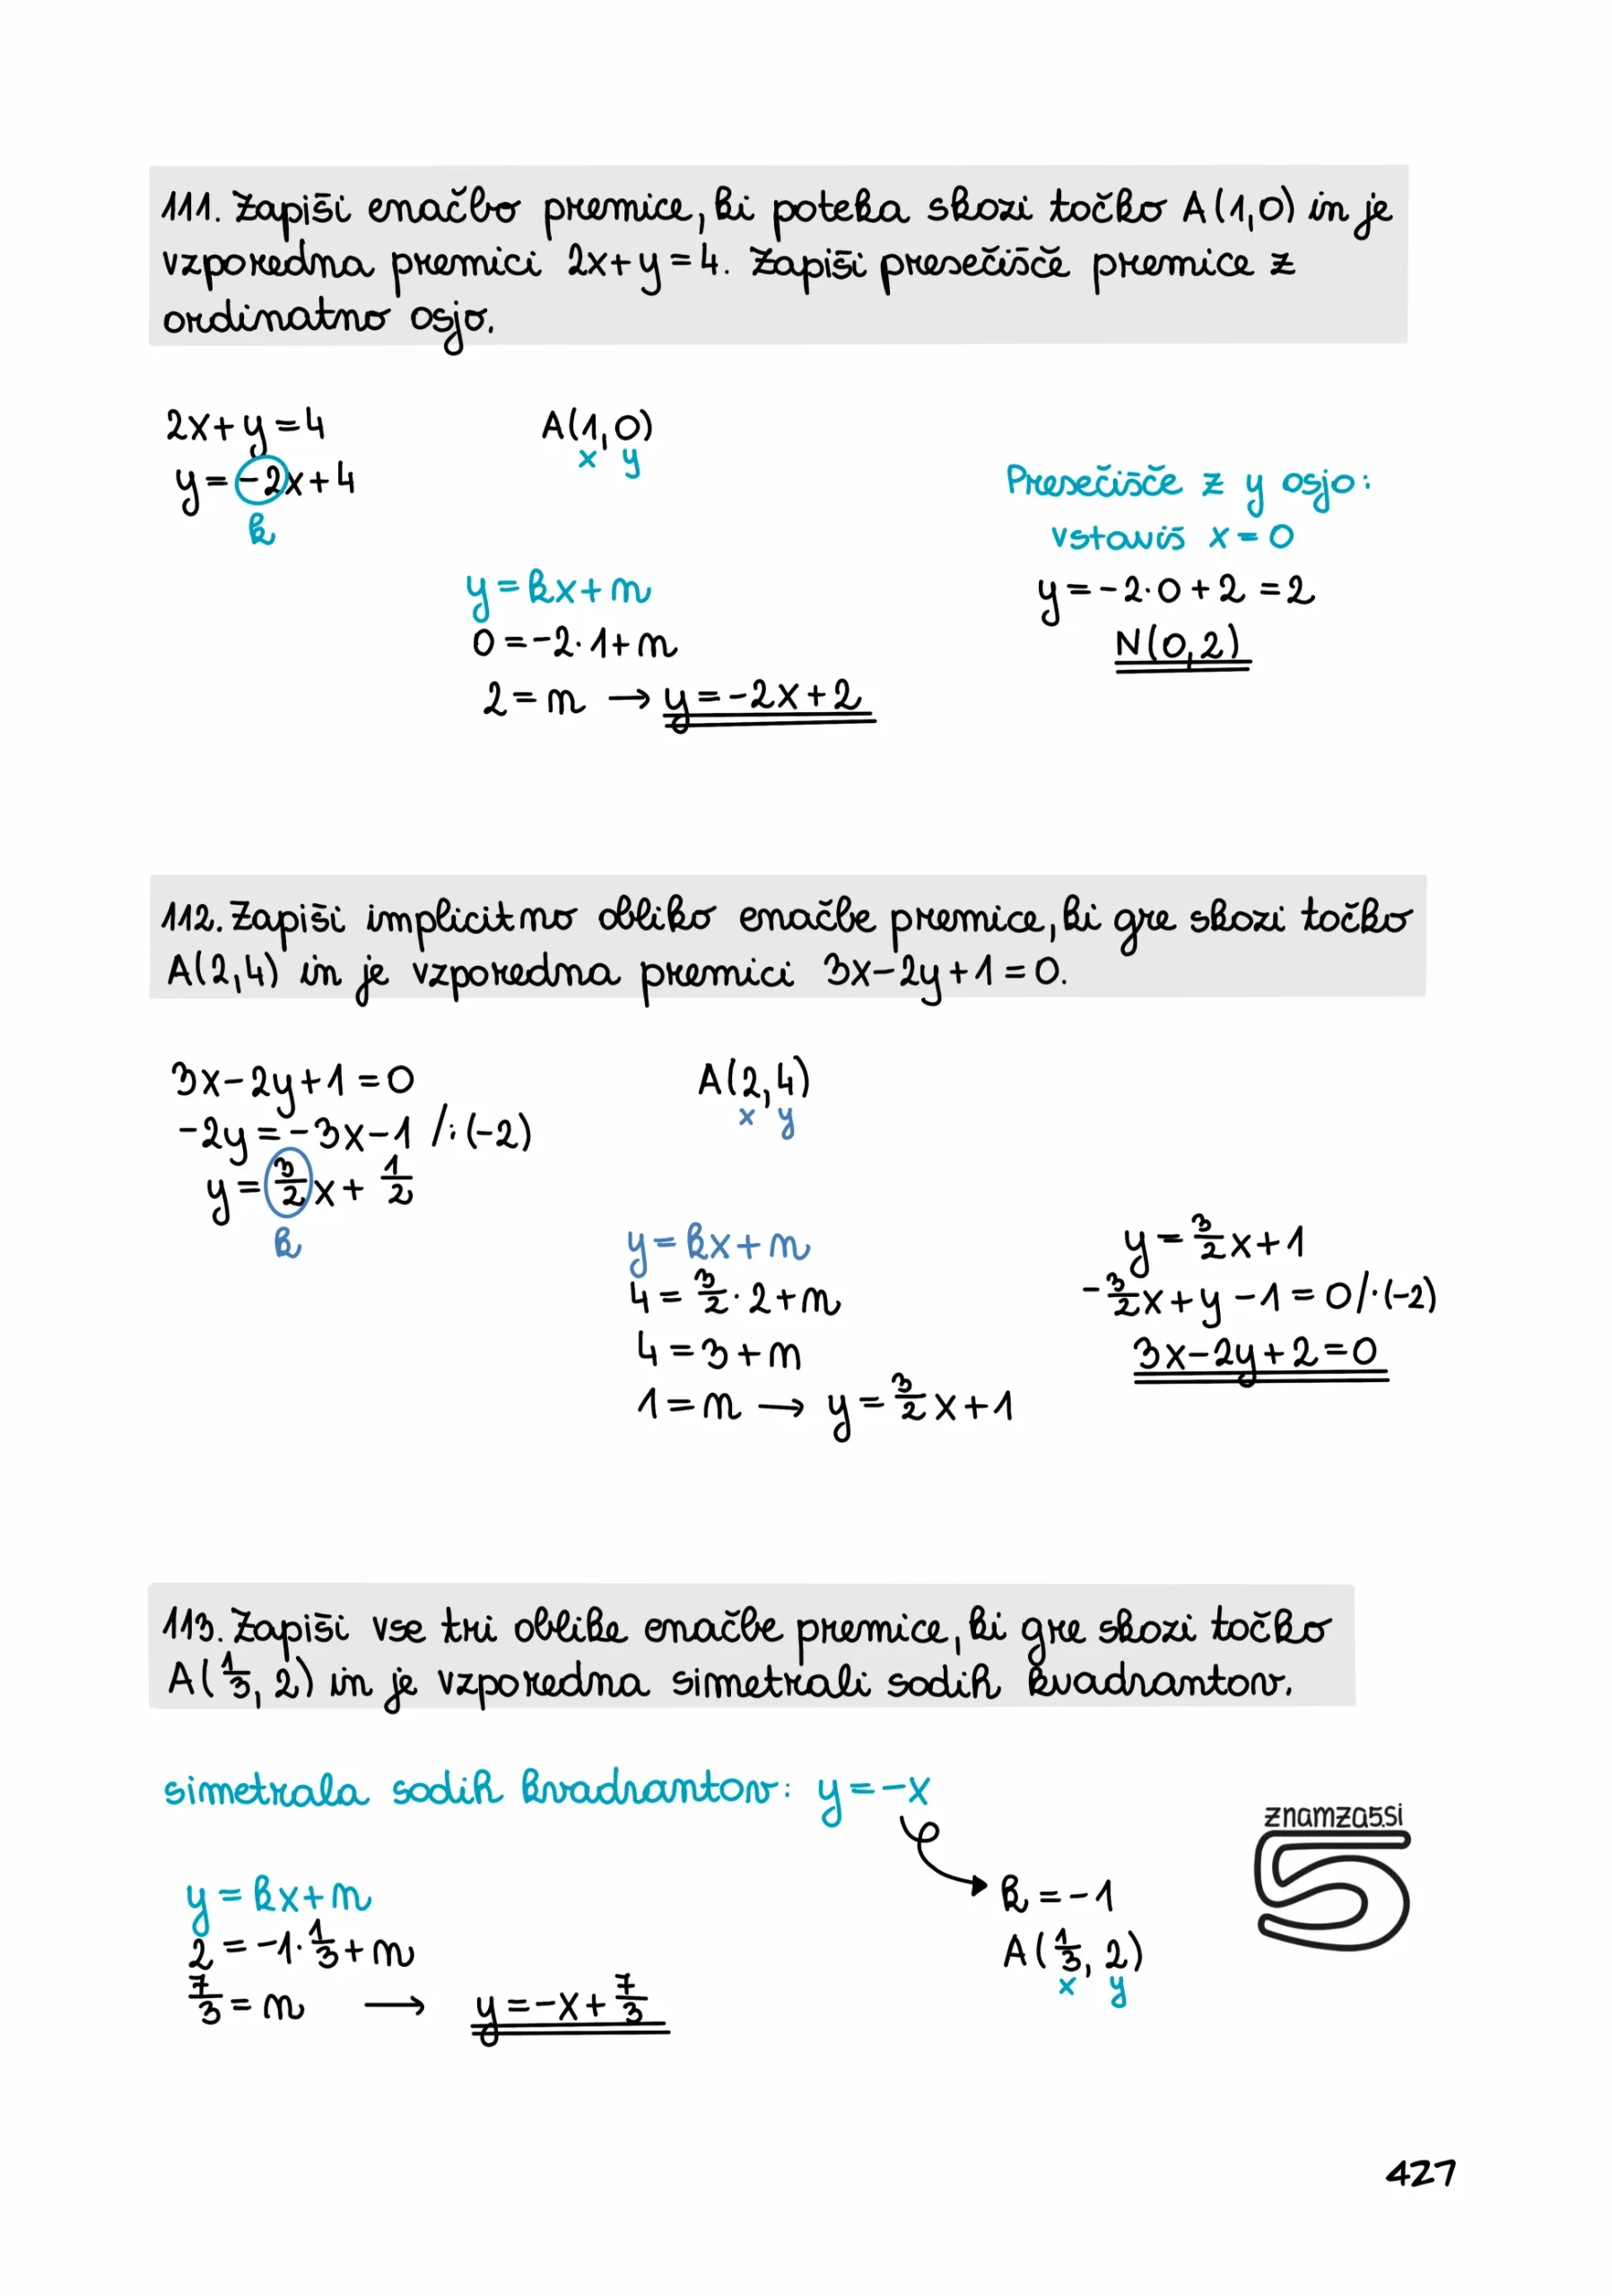 111. Zapiši enačbo premice, ki poteka skozi točko A(1,0) in je
vzporedna premici 2x+y=4. Zapiši presečišče premice z
ordinatno osjo.
2x+y=4
y=-2x+4
k
A(1,0)
x y
y=kx+n
0=-2·1+n
2=n → y=-2x+2
Presečišče z y osjo:
vstaviš x=0
y=-2·0+2=2
N(0,2)
112. Zapiši implicitno obliko enačbe premice, ki gre skozi točko
A(2,4) in je vzporedna premici 3x-2y+1=0.
3x-2y+1=0
-2y=-3x-1 /:(-2)
y=3/2x+1/2
k
A(2,4)
x y
y=kx+n
4=3/2·2+n
4=3+n
1=n → y=3/2x+1
y=3/2x+1
-3/2x+y-1=0/·(-2)
3x-2y+2=0
113. Zapiši vse tri oblike enačbe premice, ki gre skozi točko
A(1/3, 2) in je vzporedna simetrali sodih kvadrantov.
simetrala sodih kvadrantov: y=-x
k=-1
A(1/3, 2)
x y
y=kx+n
2=-1·1/3+n
7/3=n → y=-x+7/3
znamza5.si
5
427